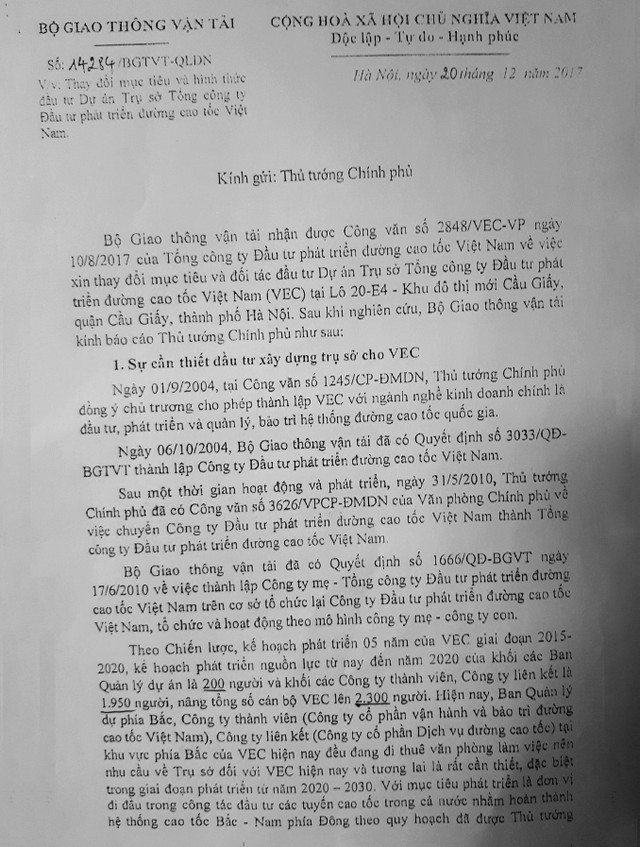 BỘ GIAO THÔNG VẬN TẢI
CỘNG HOÀ XÃ HỘI CHỦ NGHĨA VIỆT NAM
Độc lập - Tự do - Hạnh phúc
Số: 14284/BGTVT-QLDN
V/v: Thay đổi mục tiêu và hình thức
đầu tư Dự án Trụ sở Tổng công ty
Đầu tư phát triển đường cao tốc Việt
Nam.
Hà Nội, ngày 20 tháng 12 năm 2017
Kính gửi: Thủ tướng Chính phủ
Bộ Giao thông vận tải nhận được Công văn số 2848/VEC-VP ngày
10/8/2017 của Tổng công ty Đầu tư phát triển đường cao tốc Việt Nam về việc
xin thay đổi mục tiêu và đối tác đầu tư Dự án Trụ sở Tổng công ty Đầu tư phát
triển đường cao tốc Việt Nam (VEC) tại Lô 20-E4 - Khu đô thị mới Cầu Giấy,
quận Cầu Giấy, thành phố Hà Nội. Sau khi nghiên cứu, Bộ Giao thông vận tải
kính báo cáo Thủ tướng Chính phủ như sau:
1. Sự cần thiết đầu tư xây dựng trụ sở cho VEC
Ngày 01/9/2004, tại Công văn số 1245/CP-ĐMDN, Thủ tướng Chính phủ
đồng ý chủ trương cho phép thành lập VEC với ngành nghề kinh doanh chính là
đầu tư, phát triển và quản lý, bảo trì hệ thống đường cao tốc quốc gia.
Ngày 06/10/2004, Bộ Giao thông vận tải đã có Quyết định số 3033/QĐ-
BGTVT thành lập Công ty Đầu tư phát triển đường cao tốc Việt Nam.
Sau một thời gian hoạt động và phát triển, ngày 31/5/2010, Thủ tướng
Chính phủ đã có Công văn số 3626/VPCP-ĐMDN của Văn phòng Chính phủ về
việc chuyển Công ty Đầu tư phát triển đường cao tốc Việt Nam thành Tổng
công ty Đầu tư phát triển đường cao tốc Việt Nam.
Bộ Giao thông vận tải đã có Quyết định số 1666/QĐ-BGVT ngày
17/6/2010 về việc thành lập Công ty mẹ - Tổng công ty Đầu tư phát triển đường
cao tốc Việt Nam trên cơ sở tổ chức lại Công ty Đầu tư phát triển đường cao tốc
Việt Nam, tổ chức và hoạt động theo mô hình công ty mẹ - công ty con.
Theo Chiến lược, kế hoạch phát triển 05 năm của VEC giai đoạn 2015-
2020, kế hoạch phát triển nguồn lực từ nay đến năm 2020 của khối các Ban
Quản lý dự án là 200 người và khối các Công ty thành viên, Công ty liên kết là
1.950 người, nâng tổng số cán bộ VEC lên 2.300 người. Hiện nay, Ban Quản lý
dự phía Bắc, Công ty thành viên (Công ty cổ phần vận hành và bảo trì đường
cao tốc Việt Nam), Công ty liên kết (Công ty cổ phần Dịch vụ đường cao tốc) tại
khu vực phía Bắc của VEC hiện nay đều đang đi thuê văn phòng làm việc nên
nhu cầu về Trụ sở đối với VEC hiện nay và tương lai là rất cần thiết, đặc biệt
trong giai đoạn phát triển từ năm 2020 – 2030. Với mục tiêu phát triển là đơn vị
đi đầu trong công tác đầu tư các tuyến cao tốc trong cả nước nhằm hoàn thành
hệ thống cao tốc Bắc - Nam phía Đông theo quy hoạch đã được Thủ tướng